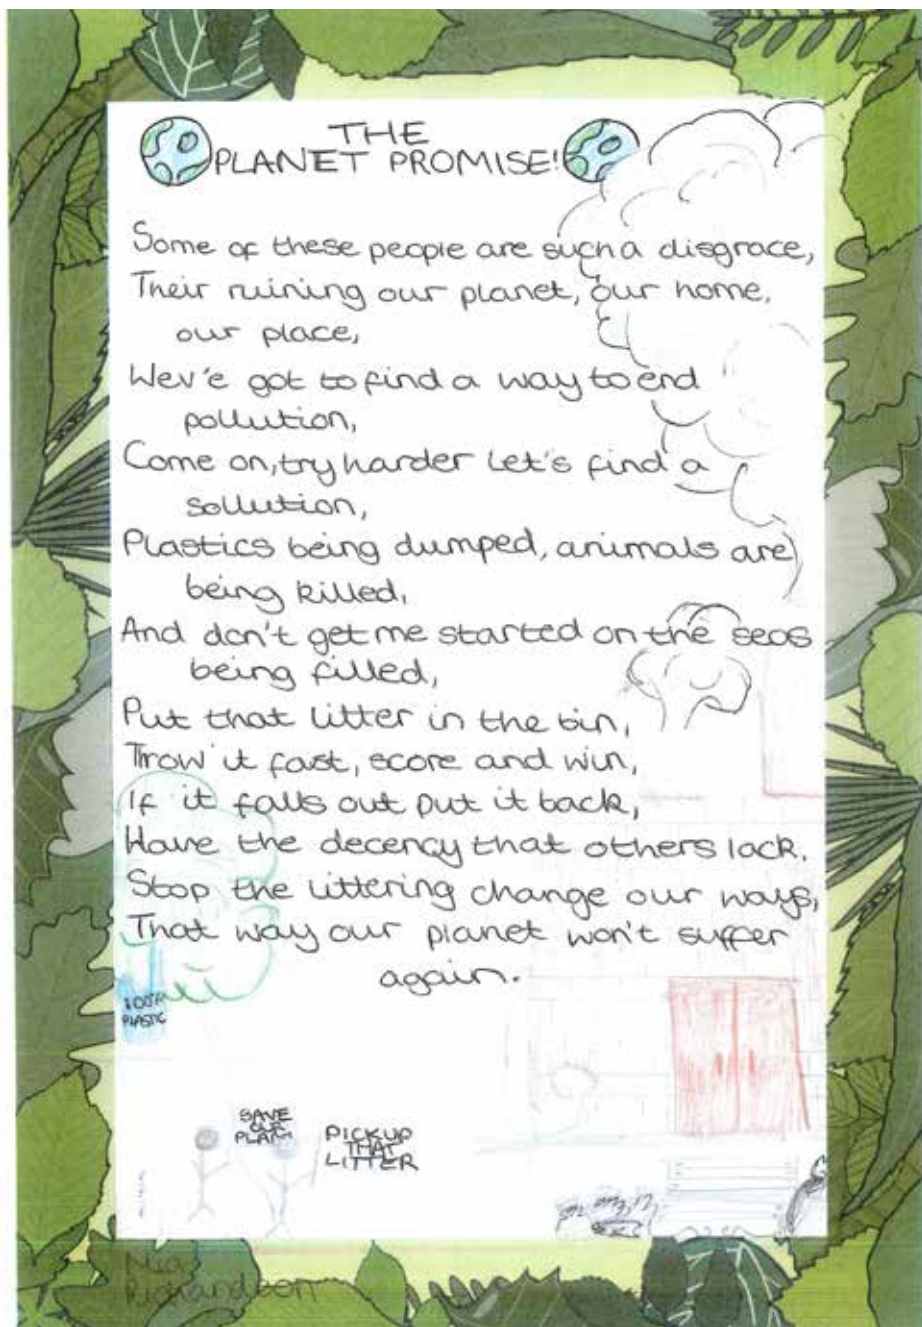 THE
PLANET PROMISE!
Some of these people are such a disgrace,
Their ruining our planet, our home,
our place,
Wev'e got to find a way to end
pollution,
Come on, try harder Let's find a
sollution,
Plastics being dumped, animals are
being killed,
And don't get me started on the seas
being filled,
Put that litter in the bin,
Throw it fast, score and win,
If it falls out put it back,
Have the decency that others lack.
Stop the littering change our ways,
That way our planet won't suffer
again.
PLASTIC
SAVE
OUR
PICK UP
THAT
LITTER
Richardson